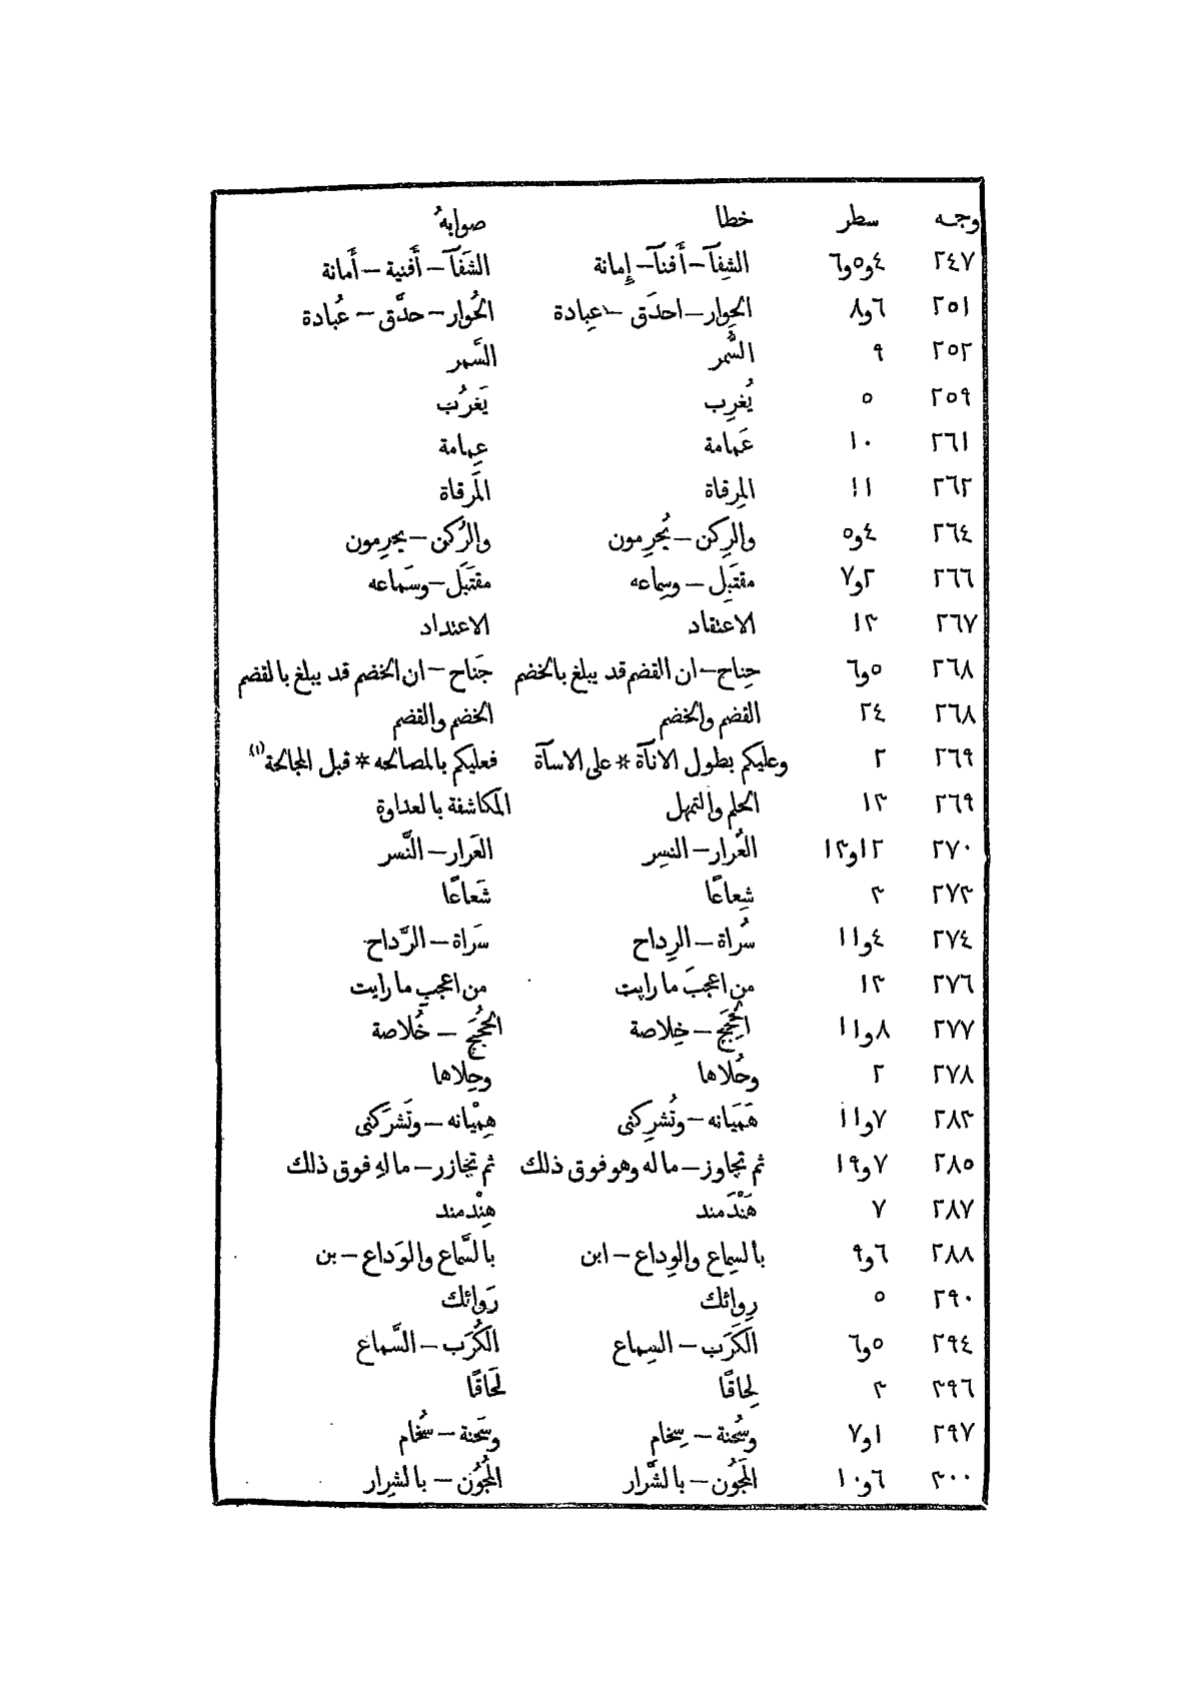 وجه سطر خطا صوابهُ
٢٤٧ ٤و٥و٦ الشِفآ – أَفنآ – إِمانة الشَفآ – أَفنية – أَمانة
٢٥١ ٦و٨ الحِوار – احدَق – عِبادة الحُوار – حدَّق – عُبادة
٢٥٢ ٩ السُّمر السَّمر
٢٥٩ ٥ يُغرِب يَغرُب
٢٦١ ١٠ عَمامة عِمامة
٢٦٢ ١١ المِرقاة المَرقاة
٢٦٤ ٤و٥ والرِكن – يُجرِمون والرُكن – يجرِمون
٢٦٦ ٢و٧ مقتَبِل – وسِماعه مقتَبَل – وسَماعه
٢٦٧ ١٣ الاعتقاد الاعتداد
٢٦٨ ٥و٦ جِناح – ان القضم قد يبلغ بالخضم جَناح – ان الخضم قد يبلغ بالقضم
٢٦٨ ٢٤ القضم والخضم الخضم والقضم
٢٦٩ ٢ وعليكم بطول الانآة * على الاسآة فعليكم بالمصالحه * قبل المجالحة (١)
٢٦٩ ١٣ الحلم والتمهل المكاشفة بالعداوة
٢٧٠ ١٢و١٣ العُرار – النسِر العَرار – النَّسر
٢٧٣ ٣ شِعاعًا شَعاعًا
٢٧٤ ٤و١١ سُراة – الرِداح سَراة – الرَّداح
٢٧٦ ١٣ من اعجبَ ما رايت من اعجبِ ما رايت
٢٧٧ ٨و١١ الحِجَج – خِلاصة الحُجَج – خُلاصة
٢٧٨ ٢ وحُلاها وحِلاها
٢٨٣ ٧و١١ هَمَيانه – وتُشرِكنى هِمْيانه – وتَشرَكنى
٢٨٥ ٧و١٩ ثم تجاوز – ما له وهو فوق ذلك ثم تخازر – ما لهِ فوق ذلك
٢٨٧ ٧ هَنْدَمند هِنْدمند
٢٨٨ ٦و٩ بالسِماع والوِداع – ابن بالسَّماع والوَداع – بن
٢٩٠ ٥ رِوائك رَوائك
٢٩٤ ٥و٦ الكَرَب – السِماع الكُرَب – السَّماع
٢٩٦ ٣ لِحاقًا لَحَاقًا
٢٩٧ ١و٧ وسُحنة – سِخام وسَحَنة – سُخام
٣٠٠ ٦و١٠ المَجُون – بالشَّرار المُجُون – بالشِرار